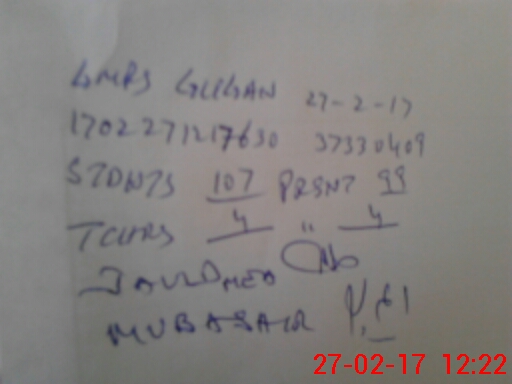 GMPS GULGAN 27-2-17
1702271217630 37330409
STDNTS 107 PRSNT 99
TCHRS 4 " 4
JAVED
MUBASAIR
27-02-17 12:22